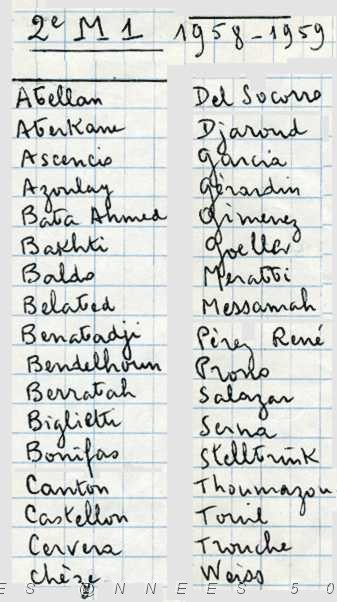 2e M1 1958-1959
Atellan
Aterkane
Ascencio
Azoulay
Bata Ahmed
Bakhti
Baldo
Belated
Benatadji
Bendelhoum
Berratah
Biglietti
Bonifas
Canton
Castellon
Cervera
Chèze
Del Socorro
Djaroud
Garcia
Gérardin
Gimenez
Goeller
Meratti
Messamah
Pérez René
Prono
Salazar
Serna
Thoumazou
Touil
Trouche
Weiss
ES ANNEES 50